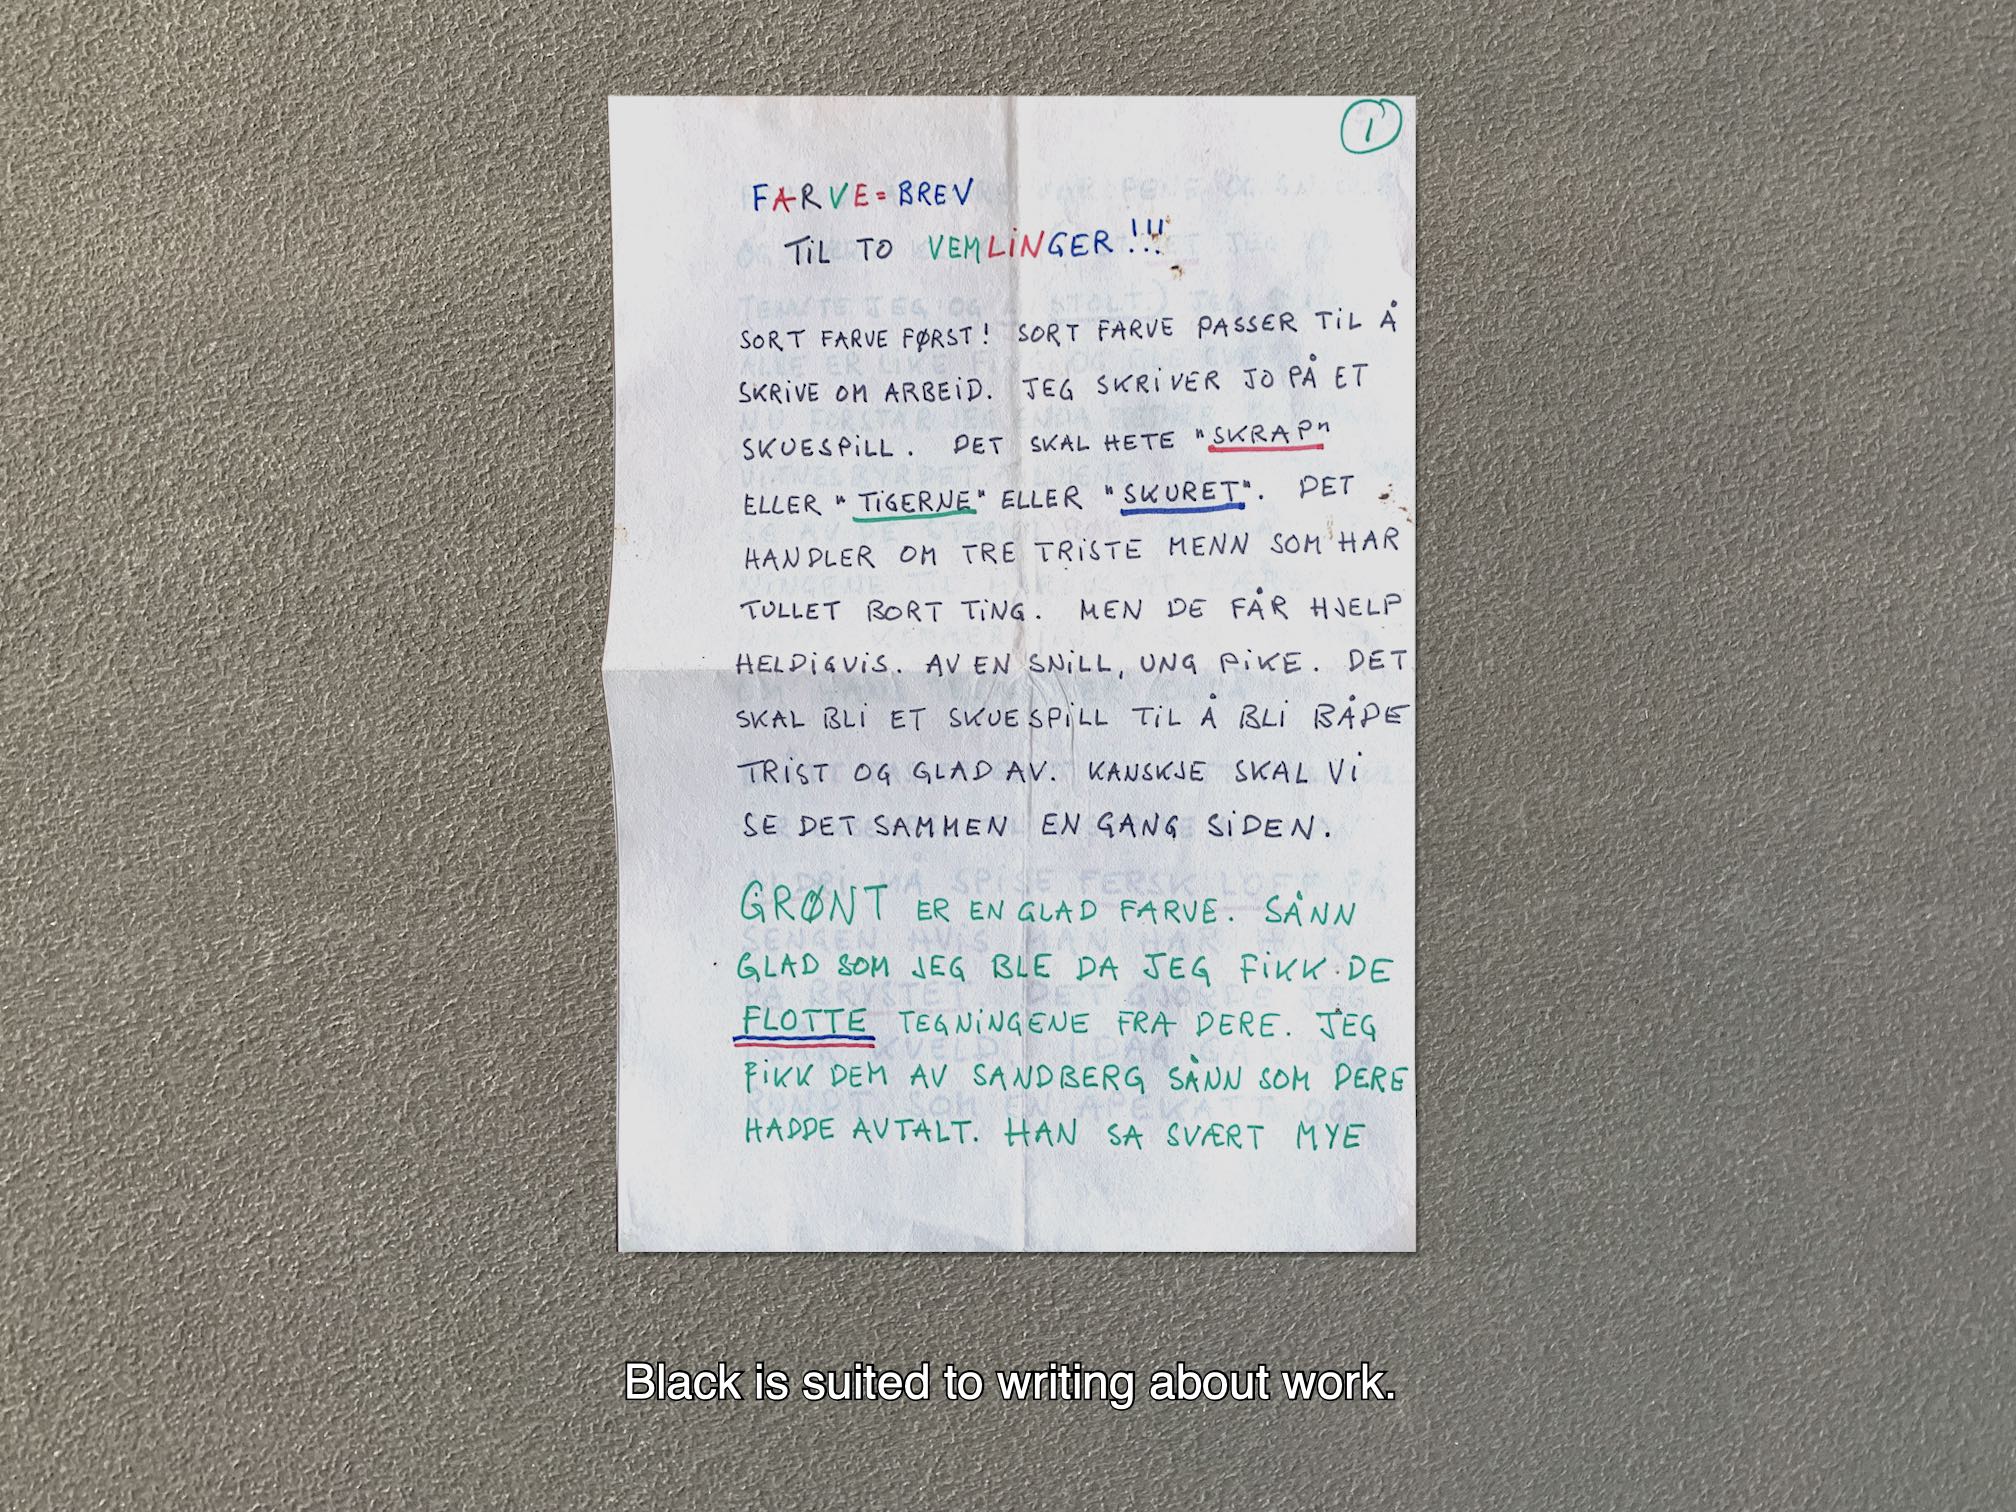 1
FARVE=BREV
TIL TO VEMLINGER!!!
SORT FARVE FØRST! SORT FARVE PASSER TIL Å
SKRIVE OM ARBEID. JEG SKRIVER JO PÅ ET
SKUESPILL. DET SKAL HETE "SKRAP"
ELLER "TIGERNE" ELLER "SKURET". DET
HANDLER OM TRE TRISTE MENN SOM HAR
TULLET BORT TING. MEN DE FÅR HJELP
HELDIGVIS. AV EN SNILL, UNG PIKE. DET
SKAL BLI ET SKUESPILL TIL Å BLI BÅDE
TRIST OG GLAD AV. KANSKJE SKAL VI
SE DET SAMMEN EN GANG SIDEN.
GRØNT ER EN GLAD FARVE. SÅNN
GLAD SOM JEG BLE DA JEG FIKK DE
FLOTTE TEGNINGENE FRA DERE. JEG
FIKK DEM AV SANDBERG SÅNN SOM DERE
HADDE AVTALT. HAN SA SVÆRT MYE
Black is suited to writing about work.